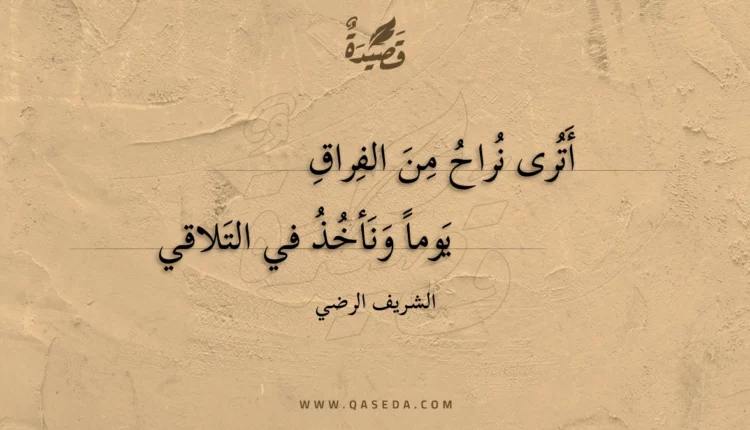 قَصِيدَةٌ
أَتُرى نُراحُ مِنَ الفِراقِ
يَوماً وَنَأخُذُ في التَلاقي
الشريف الرضي
WWW.QASEDA.COM